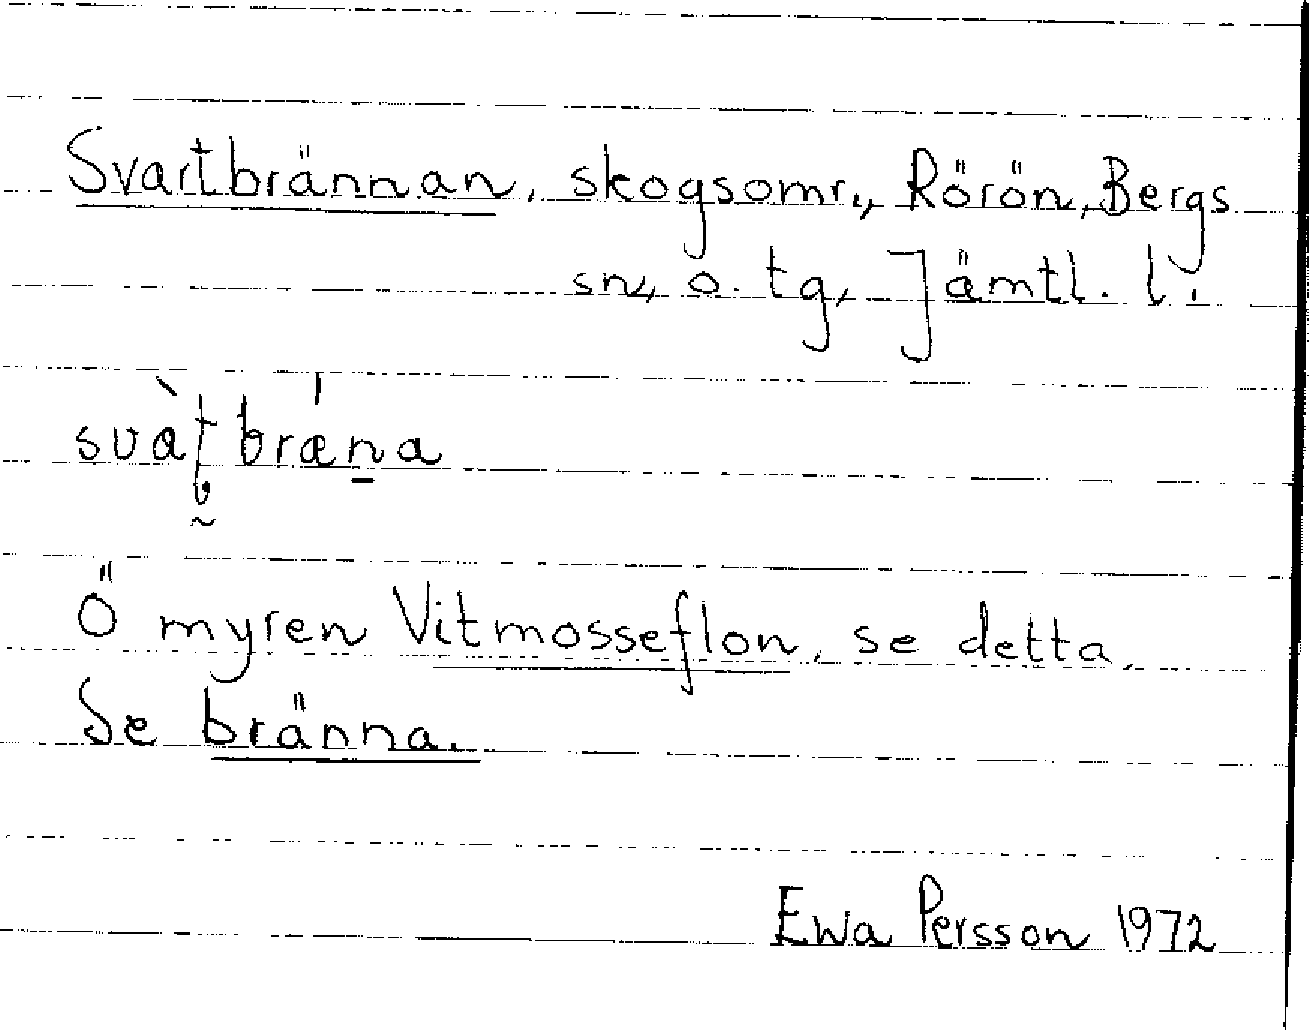 Svartbrännan, skogsomr., Rörön, Bergs
sn, o. tg, Jämtl. l.
svàt̡bræ̍n̠a
Ö myren Vitmosseflon, se detta.
Se bränna.
Ewa Persson 1972